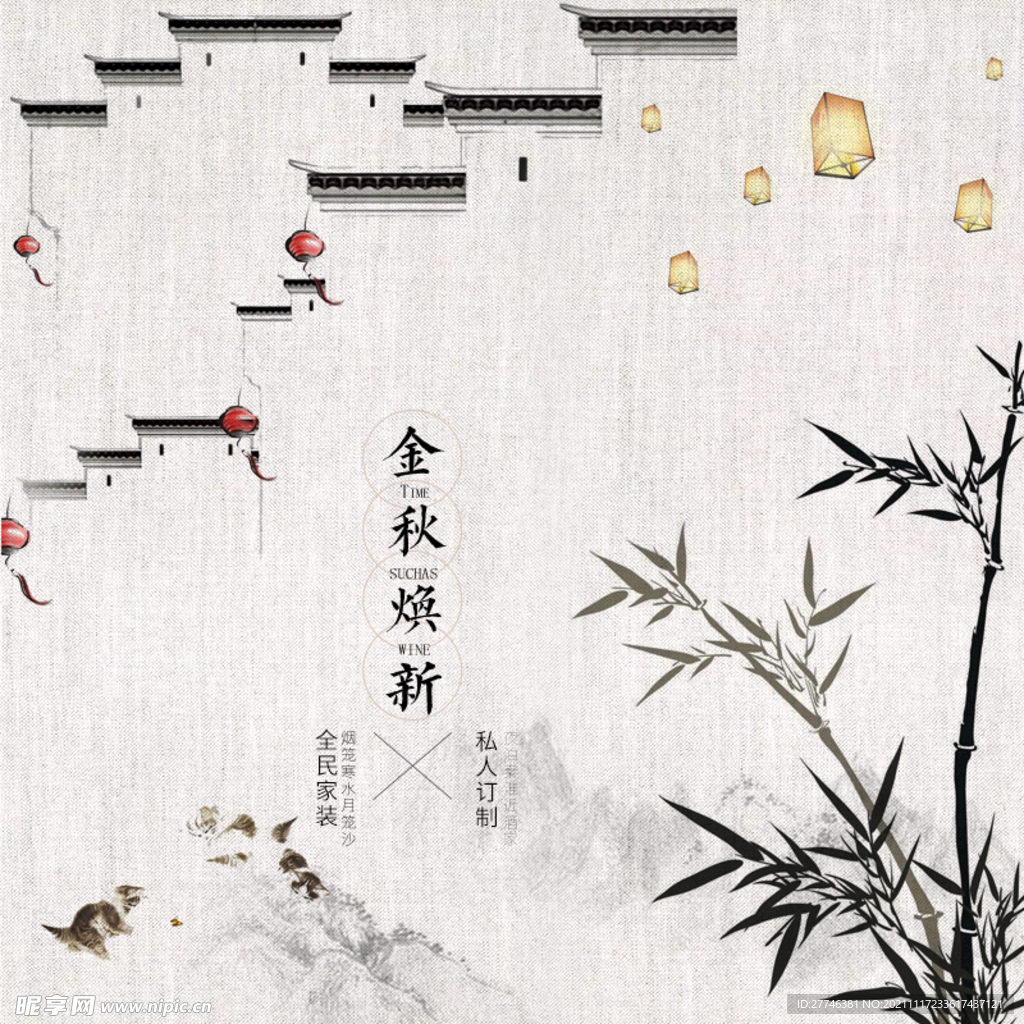 金
TIME
秋
SUCHAS
焕
WINE
新
全民家装
烟笼寒水月笼沙
私人订制
夜泊秦淮近酒家
昵享网 www.nipic.cn
ID:27746381 NO:20211117233617437121